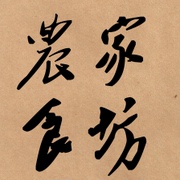 農家
食坊